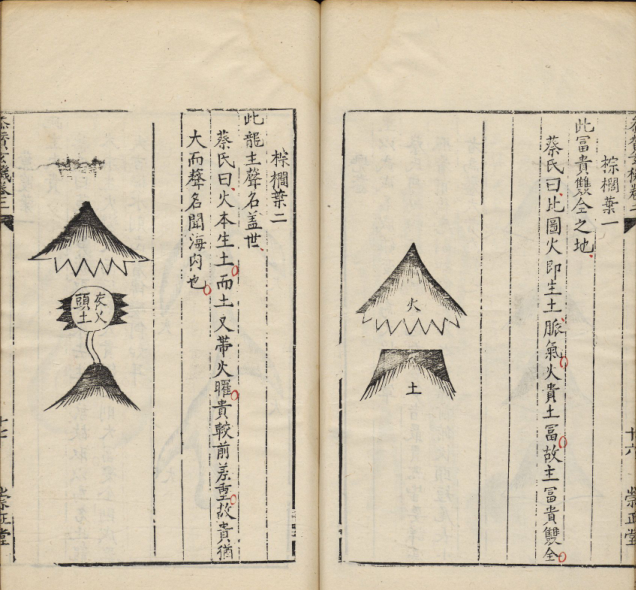 棕櫚葉一
此冨貴雙全之地
蔡氏曰此圖火即生土脈氣火貴土冨故主冨貴雙全
火
土
十六
崇正堂
棕櫚葉二
此龍主聲名盖世
蔡氏曰火本生土而土又帶火曜貴較前差重故貴猶
大而聲名聞海内也
夜叉
頭土
十七
崇正堂